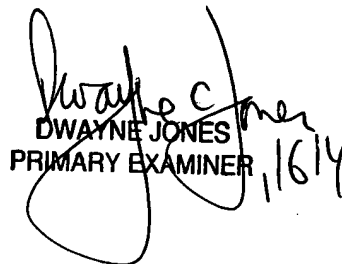 Dwayne C Jones
DWAYNE JONES
PRIMARY EXAMINER, 1614